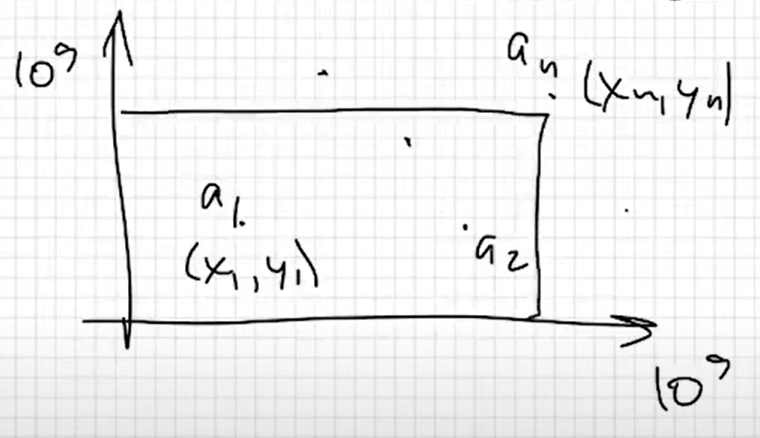 10⁹
aₙ
(xₙ, yₙ)
a₁
(x₁, y₁)
a₂
10⁹